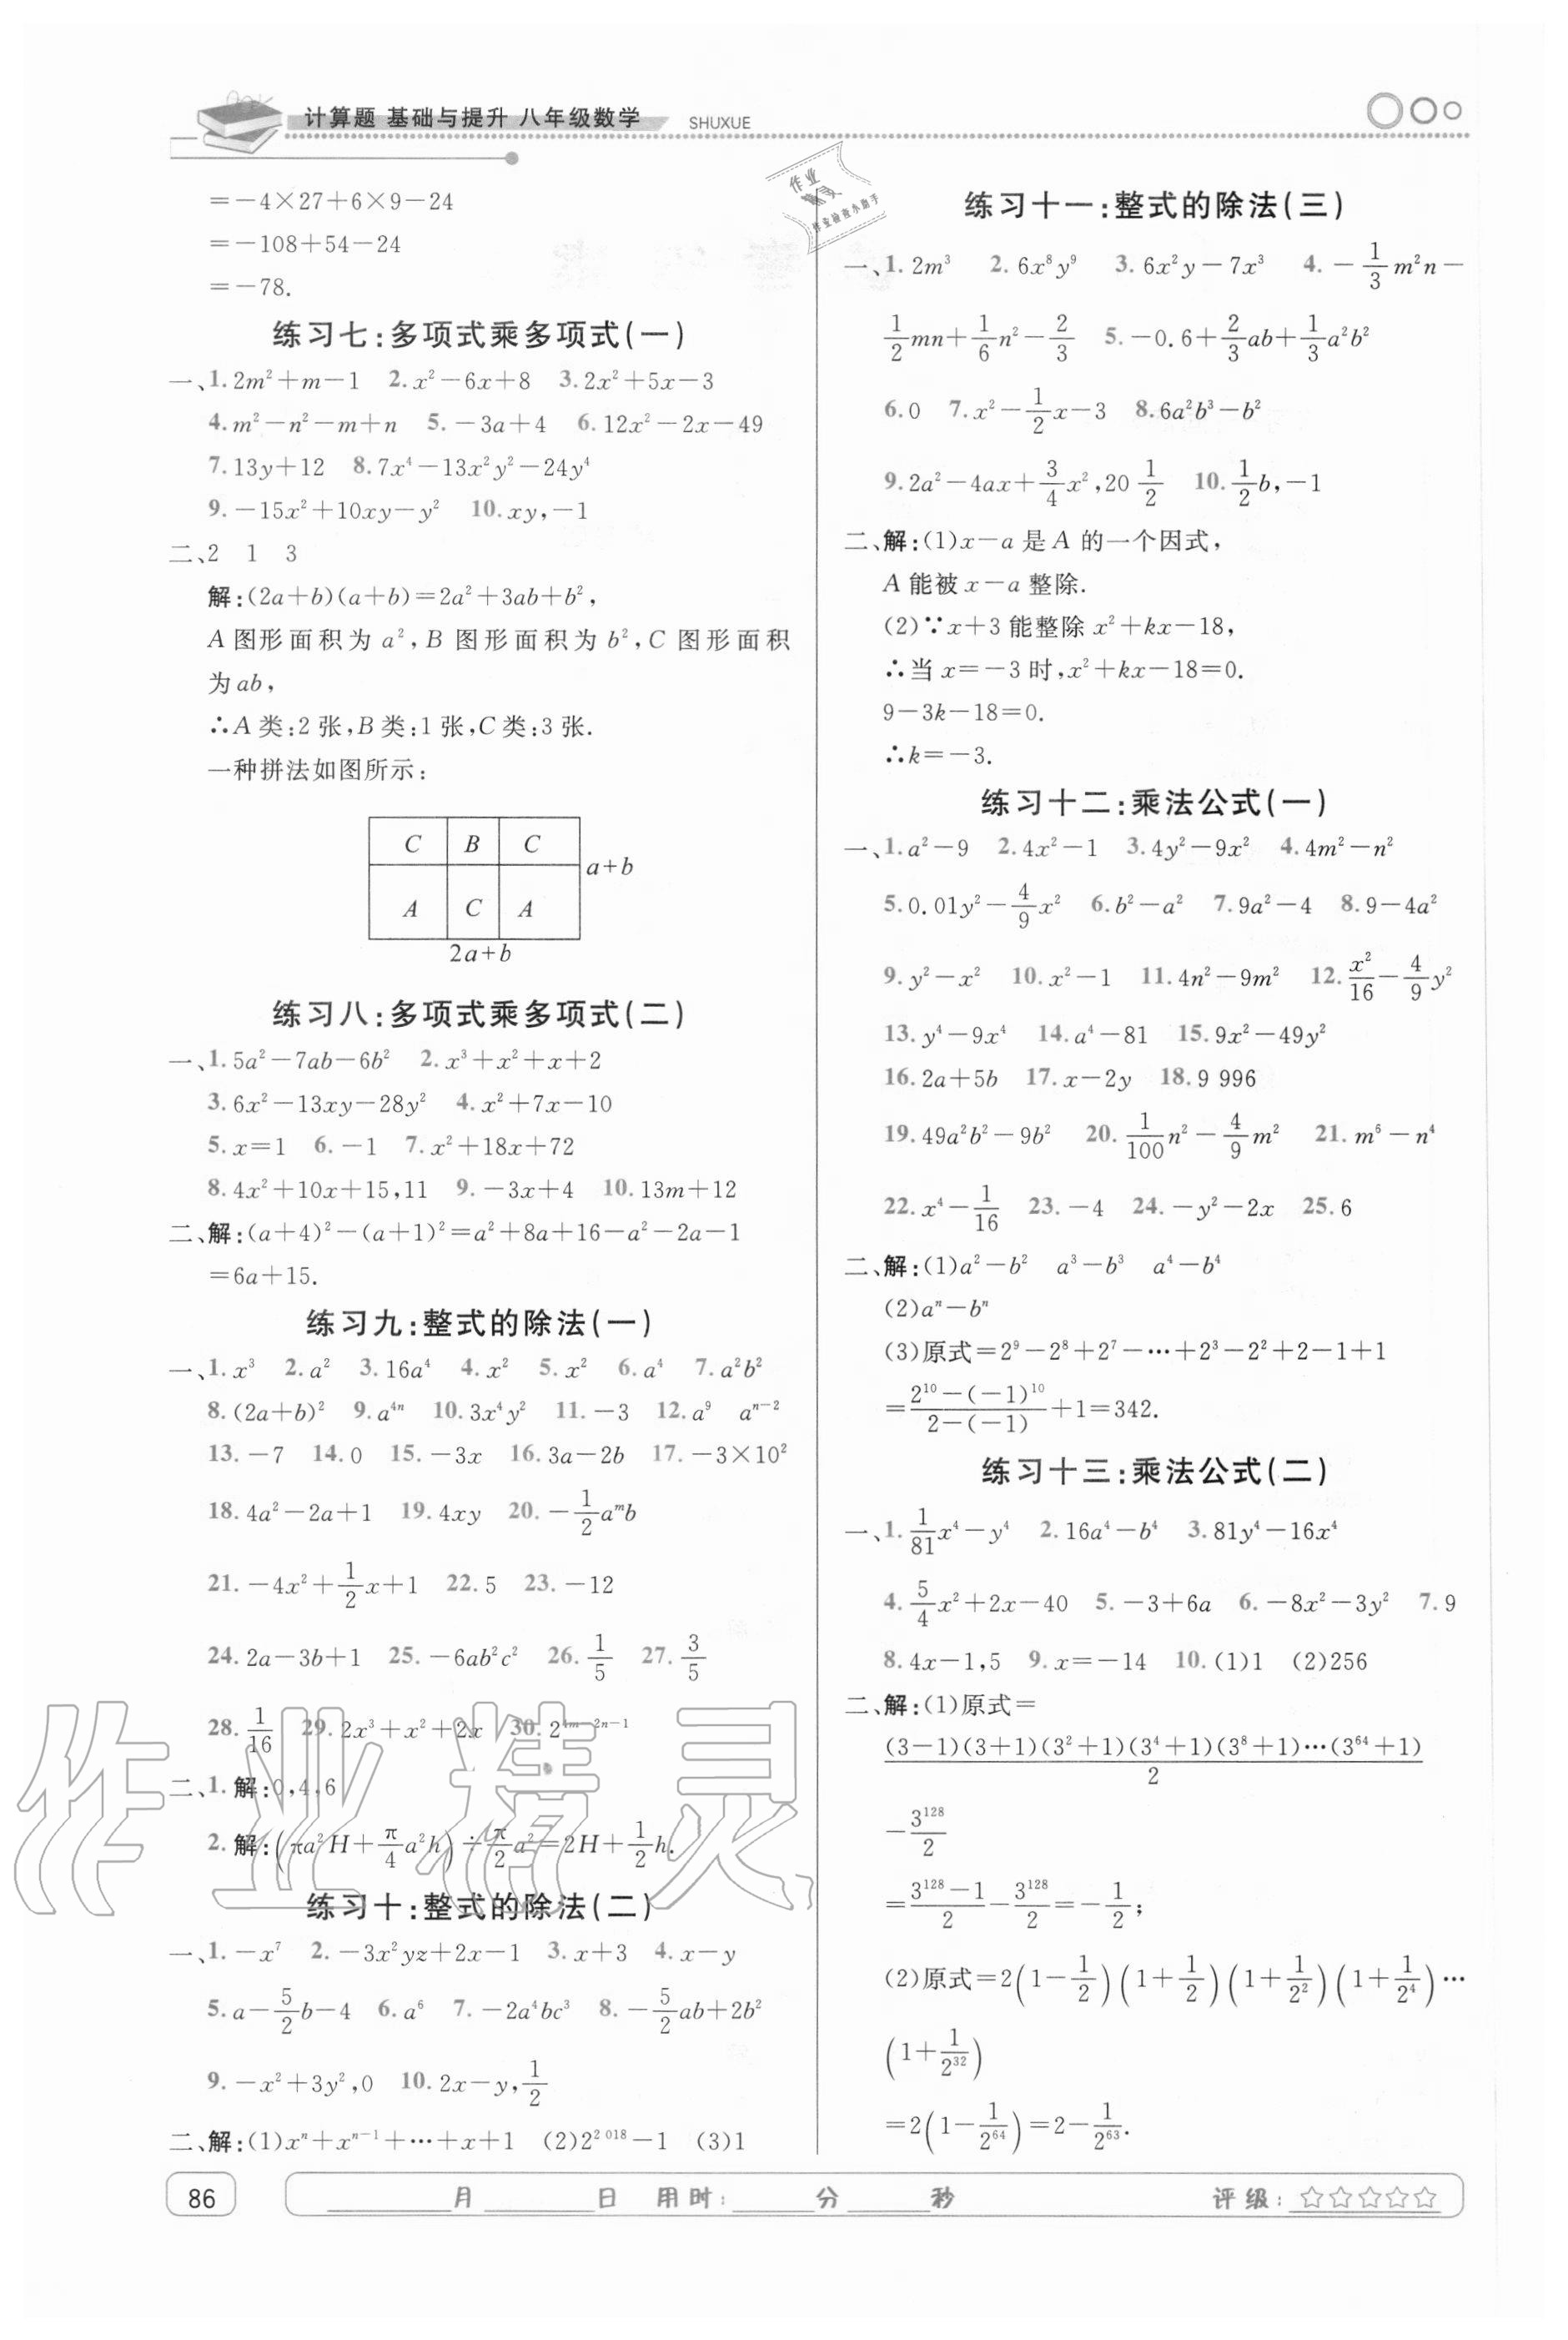 计算题 基础与提升 八年级数学 SHUXUE
=-4×27+6×9-24
=-108+54-24
=-78.
练习七:多项式乘多项式(一)
一、1.2m²+m-1 2.x²-6x+8 3.2x²+5x-3
4.m²-n²-m+n 5.-3a+4 6.12x²-2x-49
7.13y+12 8.7x⁴-13x²y²-24y⁴
9.-15x²+10xy-y² 10.xy,-1
二、2 1 3
解:(2a+b)(a+b)=2a²+3ab+b²,
A图形面积为a²,B图形面积为b²,C图形面积
为ab,
∴A类:2张,B类:1张,C类:3张.
一种拼法如图所示:
C B C
a+b
A C A
2a+b
练习八:多项式乘多项式(二)
一、1.5a²-7ab-6b² 2.x³+x²+x+2
3.6x²-13xy-28y² 4.x²+7x-10
5.x=1 6.-1 7.x²+18x+72
8.4x²+10x+15,11 9.-3x+4 10.13m+12
二、解:(a+4)²-(a+1)²=a²+8a+16-a²-2a-1
=6a+15.
练习九:整式的除法(一)
一、1.x³ 2.a² 3.16a⁴ 4.x² 5.x² 6.a⁴ 7.a²b²
8.(2a+b)² 9.a⁴ⁿ 10.3x⁴y² 11.-3 12.a⁹ aⁿ⁻²
13.-7 14.0 15.-3x 16.3a-2b 17.-3×10²
18.4a²-2a+1 19.4xy 20.-1/2aᵐb
21.-4x²+1/2x+1 22.5 23.-12
24.2a-3b+1 25.-6ab²c² 26.1/5 27.3/5
28.1/16 29.2x³+x²+2x 30.2⁴ᵐ⁻²ⁿ⁻¹
二、1.解:0,4,6
2.解:(πa²H+π/4a²h)÷π/2a²=2H+1/2h.
练习十:整式的除法(二)
一、1.-x⁷ 2.-3x²yz+2x-1 3.x+3 4.x-y
5.a-5/2b-4 6.a⁶ 7.-2a⁴bc³ 8.-5/2ab+2b²
9.-x²+3y²,0 10.2x-y,1/2
二、解:(1)xⁿ+xⁿ⁻¹+…+x+1 (2)2²⁰¹⁸-1 (3)1
练习十一:整式的除法(三)
一、1.2m³ 2.6x⁸y⁹ 3.6x²y-7x³ 4.-1/3m²n-
1/2mn+1/6n²-2/3 5.-0.6+2/3ab+1/3a²b²
6.0 7.x²-1/2x-3 8.6a²b³-b²
9.2a²-4ax+3/4x²,20 1/2 10.1/2b,-1
二、解:(1)x-a是A的一个因式,
A能被x-a整除.
(2)∵x+3能整除x²+kx-18,
∴当x=-3时,x²+kx-18=0.
9-3k-18=0.
∴k=-3.
练习十二:乘法公式(一)
一、1.a²-9 2.4x²-1 3.4y²-9x² 4.4m²-n²
5.0.01y²-4/9x² 6.b²-a² 7.9a²-4 8.9-4a²
9.y²-x² 10.x²-1 11.4n²-9m² 12.x²/16-4/9y²
13.y⁴-9x⁴ 14.a⁴-81 15.9x²-49y²
16.2a+5b 17.x-2y 18.9 996
19.49a²b²-9b² 20.1/100n²-4/9m² 21.m⁶-n⁴
22.x⁴-1/16 23.-4 24.-y²-2x 25.6
二、解:(1)a²-b² a³-b³ a⁴-b⁴
(2)aⁿ-bⁿ
(3)原式=2⁹-2⁸+2⁷-…+2³-2²+2-1+1
=(2¹⁰-(-1)¹⁰)/(2-(-1))+1=342.
练习十三:乘法公式(二)
一、1.1/81x⁴-y⁴ 2.16a⁴-b⁴ 3.81y⁴-16x⁴
4.5/4x²+2x-40 5.-3+6a 6.-8x²-3y² 7.9
8.4x-1,5 9.x=-14 10.(1)1 (2)256
二、解:(1)原式=
(3-1)(3+1)(3²+1)(3⁴+1)(3⁸+1)…(3⁶⁴+1)/2
-3¹²⁸/2
=(3¹²⁸-1)/2-3¹²⁸/2=-1/2;
(2)原式=2(1-1/2)(1+1/2)(1+1/2²)(1+1/2⁴)…
(1+1/2³²)
=2(1-1/2⁶⁴)=2-1/2⁶³.
86 月 日 用时: 分 秒 评级:☆☆☆☆☆
作业精灵
作业
作业检查小助手